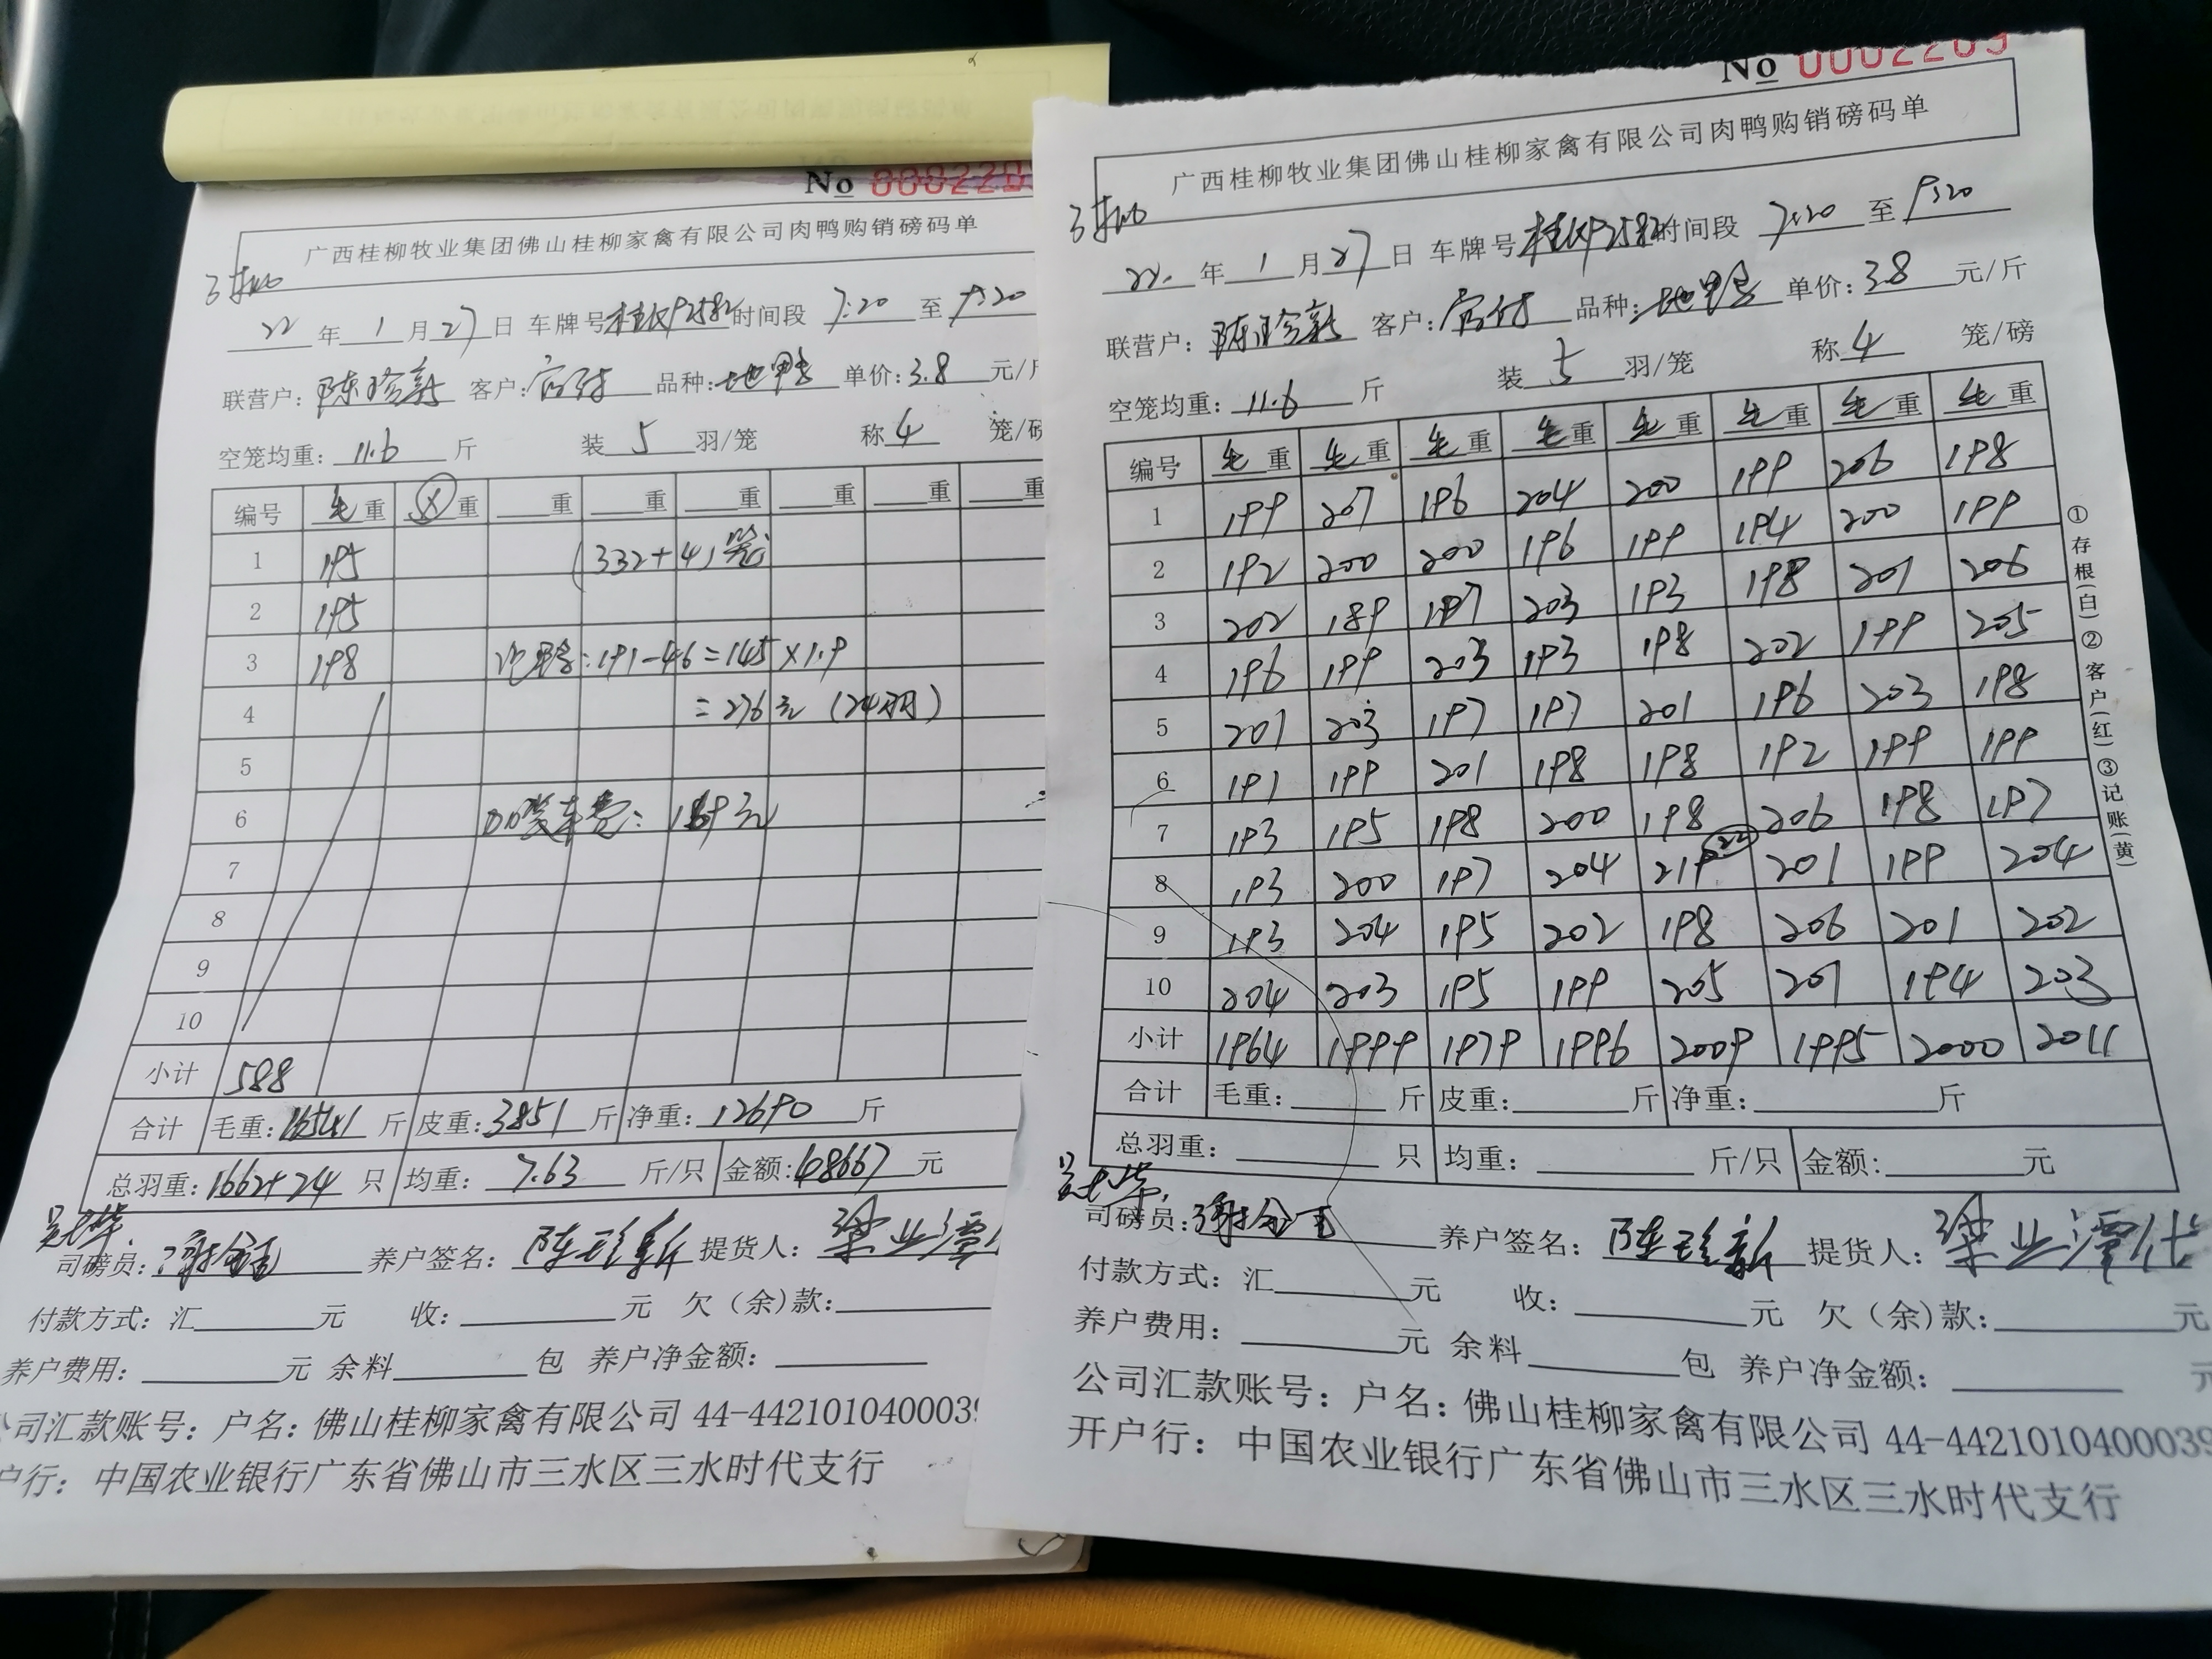 No
广西桂柳牧业集团佛山桂柳家禽有限公司肉鸭购销磅码单
22 年 1 月 27 日 车牌号 时间段 7:20 至 9:20
联营户: 陈珍新 客户: 品种: 单价: 3.8 元/斤
空笼均重: 11.6 斤 装 5 羽/笼 称 4 笼/磅
编号 毛重 重 重 重 重 重 重 重
1 195 (332+4)笼
2 195
3 198 :191-46=145×1.9
4 =276元(24羽)
5
6 车费: 元
7
8
9
10
小计 588
合计 毛重: 16541 斤 皮重: 3851 斤 净重: 12690 斤
总羽重: 1662+24 只 均重: 7.63 斤/只 金额: 48667 元
司磅员: 养户签名: 陈珍新 提货人: 梁业潭
付款方式: 汇 元 收: 元 欠(余)款:
养户费用: 元 余料 包 养户净金额:
公司汇款账号: 户名: 佛山桂柳家禽有限公司 44-442101040003
户行: 中国农业银行广东省佛山市三水区三水时代支行
No 0002209
广西桂柳牧业集团佛山桂柳家禽有限公司肉鸭购销磅码单
22. 年 1 月 27 日 车牌号 时间段 7:20 至 9:20
联营户: 陈珍新 客户: 品种: 单价: 3.8 元/斤
空笼均重: 11.6 斤 装 5 羽/笼 称 4 笼/磅
编号 毛重 毛重 毛重 毛重 毛重 毛重 毛重 毛重
1 199 207 196 204 200 199 206 198
2 192 200 200 196 199 194 200 199
3 202 189 197 203 193 198 201 206
4 196 199 203 193 198 202 199 205
5 201 203 197 197 201 196 203 198
6 191 199 201 198 198 192 199 199
7 193 195 198 200 198 206 198 197
8 193 200 197 204 219 (22) 201 199 204
9 193 204 195 202 198 206 201 202
10 204 203 195 199 205 201 194 203
小计 1964 1999 1979 1996 2009 1995 2000 2011
合计 毛重: 斤 皮重: 斤 净重: 斤
总羽重: 只 均重: 斤/只 金额: 元
司磅员: 养户签名: 陈珍新 提货人: 梁业潭
付款方式: 汇 元 收: 元 欠(余)款: 元
养户费用: 元 余料 包 养户净金额: 元
公司汇款账号: 户名: 佛山桂柳家禽有限公司 44-4421010400039
开户行: 中国农业银行广东省佛山市三水区三水时代支行
①存根(白)②客户(红)③记账(黄)